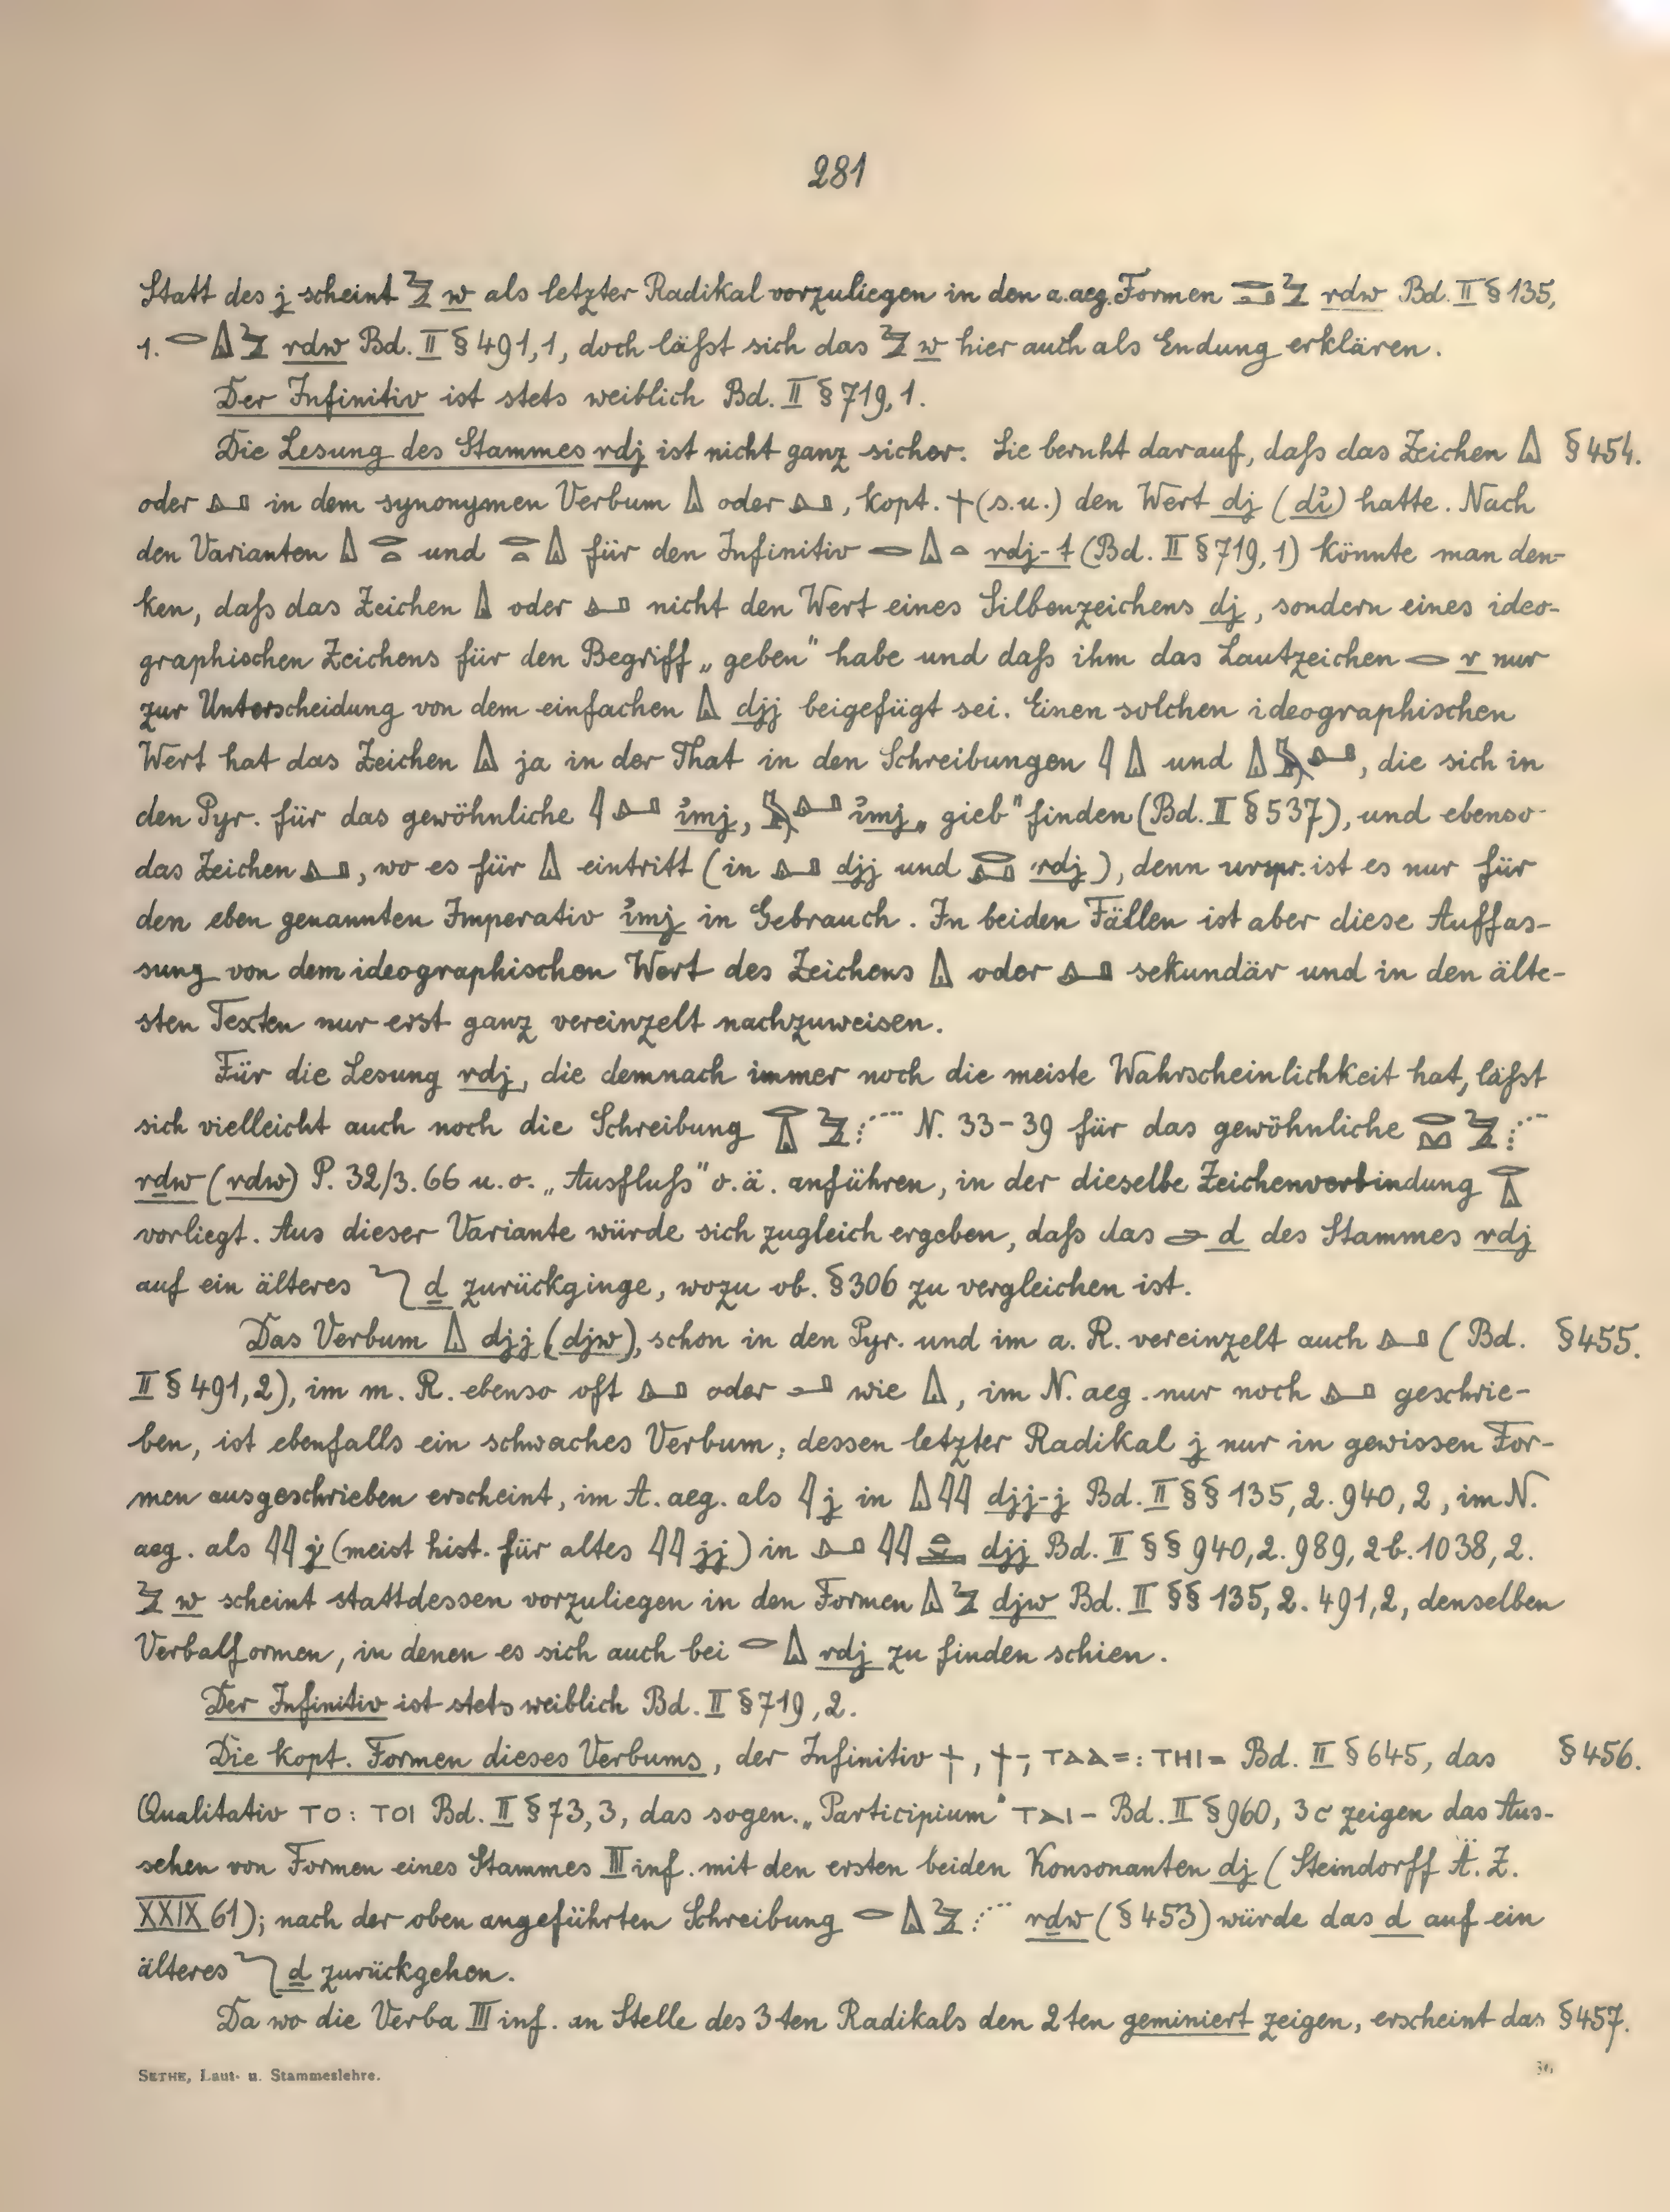 281
Statt des j scheint 𓅱 w als letzter Radikal vorzuliegen in den a.aeg. Formen 𓂋𓂞𓅱 rdw Bd. II § 135,
1. 𓂋𓏙𓅱 rdw Bd. II § 491,1, doch läßt sich das 𓅱 w hier auch als Endung erklären.
Der Infinitiv ist stets weiblich Bd. II § 719, 1.
Die Lesung des Stammes rdj ist nicht ganz sicher. Sie beruht darauf, daß das Zeichen 𓏙 § 454.
oder 𓂞 in dem synonymen Verbum 𓏙 oder 𓂞, kopt. ϯ (s.u.) den Wert dj (dỉ) hatte. Nach
den Varianten 𓏙𓂋𓏏 und 𓂋𓏏𓏙 für den Infinitiv 𓂋𓏙𓏏 rdj-t (Bd. II § 719, 1) könnte man den-
ken, daß das Zeichen 𓏙 oder 𓂞 nicht den Wert eines Silbenzeichens dj, sondern eines ideo-
graphischen Zeichens für den Begriff „geben" habe und daß ihm das Lautzeichen 𓂋 r nur
zur Unterscheidung von dem einfachen 𓏙 djj beigefügt sei. Einen solchen ideographischen
Wert hat das Zeichen 𓏙 ja in der That in den Schreibungen 𓇋𓏙 und 𓏙𓅓𓂞, die sich in
den Pyr. für das gewöhnliche 𓇋𓂞 ỉmj, 𓅓𓂞 ỉmj „gieb" finden (Bd. II § 537), und ebenso
das Zeichen 𓂞, wo es für 𓏙 eintritt (in 𓂞 djj und 𓂋𓂞 rdj), denn urspr. ist es nur für
den eben genannten Imperativ ỉmj in Gebrauch. In beiden Fällen ist aber diese Auffas-
sung von dem ideographischen Wert des Zeichens 𓏙 oder 𓂞 sekundär und in den älte-
sten Texten nur erst ganz vereinzelt nachzuweisen.
Für die Lesung rdj, die demnach immer noch die meiste Wahrscheinlichkeit hat, läßt
sich vielleicht auch noch die Schreibung 𓂋𓏙𓅱 N. 33-39 für das gewöhnliche 𓂋𓅱
rḏw (rdw) P. 32/3. 66 u.o. „Ausfluß" o.ä. anführen, in der dieselbe Zeichenverbindung 𓂋𓏙
vorliegt. Aus dieser Variante würde sich zugleich ergeben, daß das 𓂧 d des Stammes rdj
auf ein älteres 𓆓 ḏ zurückginge, wozu ob. § 306 zu vergleichen ist.
Das Verbum 𓏙 djj (djw), schon in den Pyr. und im a. R. vereinzelt auch 𓂞 (Bd. § 455.
II § 491,2), im m. R. ebenso oft 𓂞 oder 𓂝 wie 𓏙, im N. aeg. nur noch 𓂞 geschrie-
ben, ist ebenfalls ein schwaches Verbum, dessen letzter Radikal j nur in gewissen For-
men ausgeschrieben erscheint, im A. aeg. als 𓇋 j in 𓏙𓇋𓇋 djj-j Bd. II §§ 135,2. 940,2, im N.
aeg. als 𓇋𓇋 j (meist hist. für altes 𓇋𓇋 jj) in 𓂞𓇋𓇋 djj Bd. II §§ 940,2. 989, 2b. 1038, 2.
𓅱 w scheint stattdessen vorzuliegen in den Formen 𓏙𓅱 djw Bd. II §§ 135, 2. 491,2, denselben
Verbalformen, in denen es sich auch bei 𓂋𓏙 rdj zu finden schien.
Der Infinitiv ist stets weiblich Bd. II § 719, 2.
Die kopt. Formen dieses Verbums, der Infinitiv ϯ, ϯ-, ⲧⲁⲁ=: ⲧⲏⲓ= Bd. II § 645, das § 456.
Qualitativ ⲧⲟ: ⲧⲟⲓ Bd. II § 73,3, das sogen. „Participium" ⲧⲁⲓ- Bd. II § 960, 3c zeigen das Aus-
sehen von Formen eines Stammes III inf. mit den ersten beiden Konsonanten dj (Steindorff Ä. Z.
XXIX 61); nach der oben angeführten Schreibung 𓂋𓏙𓅱 rḏw (§ 453) würde das d auf ein
älteres 𓆓 ḏ zurückgehen.
Da wo die Verba III inf. an Stelle des 3ten Radikals den 2ten geminiert zeigen, erscheint das § 457.
SETHE, Laut- u. Stammeslehre. 36